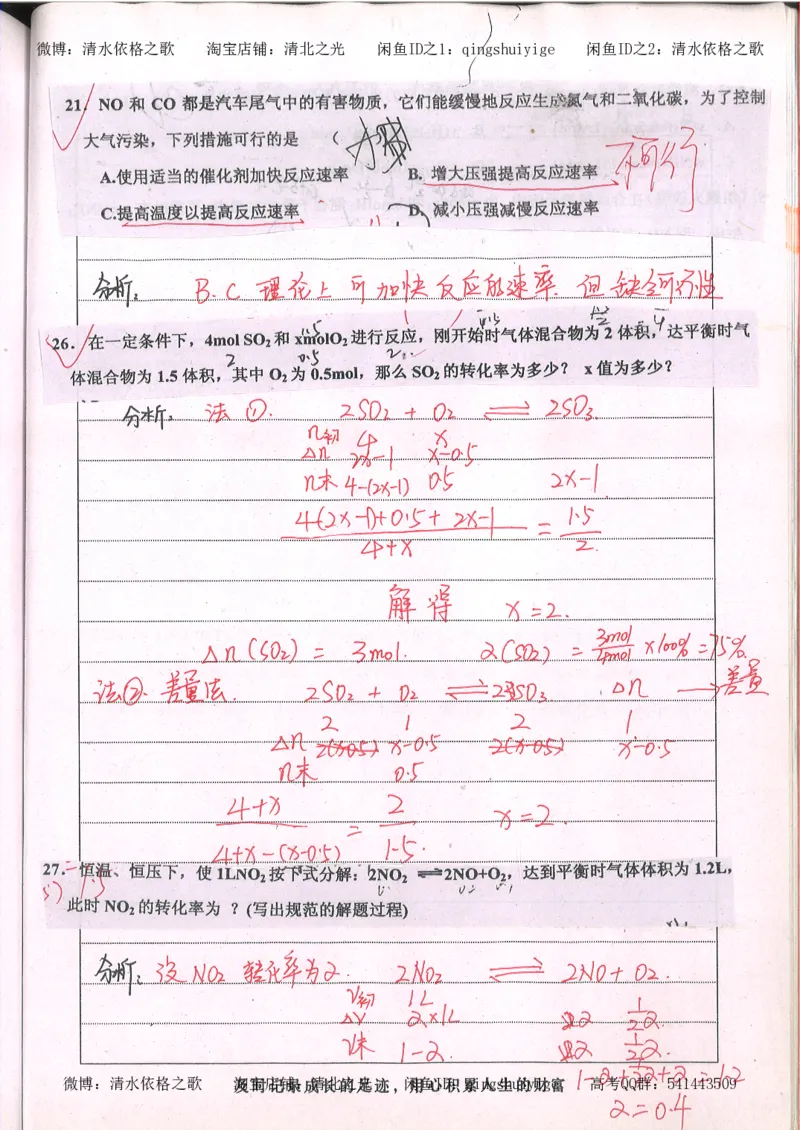 微博：清水依格之歌 淘宝店铺：清北之光 闲鱼ID之1：qingshuiyige 闲鱼ID之2：清水依格之歌
21．NO 和 CO 都是汽车尾气中的有害物质，它们能缓慢地反应生成氮气和二氧化碳，为了控制
大气污染，下列措施可行的是 （
A.使用适当的催化剂加快反应速率 B. 增大压强提高反应速率 不可行
C.提高温度以提高反应速率 D. 减小压强减慢反应速率
分析： B.C 理论上可加快反应的速率 但缺乏可行性
26．在一定条件下，4mol SO₂和 xmolO₂进行反应，刚开始时气体混合物为 2 体积，达平衡时气
体混合物为 1.5 体积，其中 O₂为 0.5mol，那么 SO₂的转化率为多少？ x 值为多少？
分析： 法①. 2SO₂ + O₂ ⇌ 2SO₃
n初 4 x
Δn 2x-1 x-0.5
n末 4-(2x-1) 0.5 2x-1
4-(2x-1)+0.5+2x-1 / 4+x = 1.5 / 2
解得 x=2.
Δn(SO₂) = 3mol. α(SO₂) = 3mol/4mol ×100% =75%
法②. 差量法. 2SO₂ + O₂ ⇌ 2SO₃ Δn → 差量
2 1 2 1
Δn 2(x-0.5) x-0.5 2(x-0.5) x-0.5
n末 0.5
4+x / 4+x-(x-0.5) = 2 / 1.5 x=2.
27. 恒温、恒压下，使 1LNO₂按下式分解：2NO₂ ⇌2NO+O₂，达到平衡时气体体积为 1.2L，
此时 NO₂的转化率为 ？(写出规范的解题过程)
分析：设 NO₂ 转化率为α. 2NO₂ ⇌ 2NO + O₂.
V初 1L
ΔV α×1L α ½α
V末 1-α α ½α.
1-α+½α+α=1.2
α=0.4
微博：清水依格之歌 淘宝店铺：清北之光 闲鱼ID：qingshuiyige 高考QQ群：541443509
及时记录成长的足迹，用心积累人生的财富